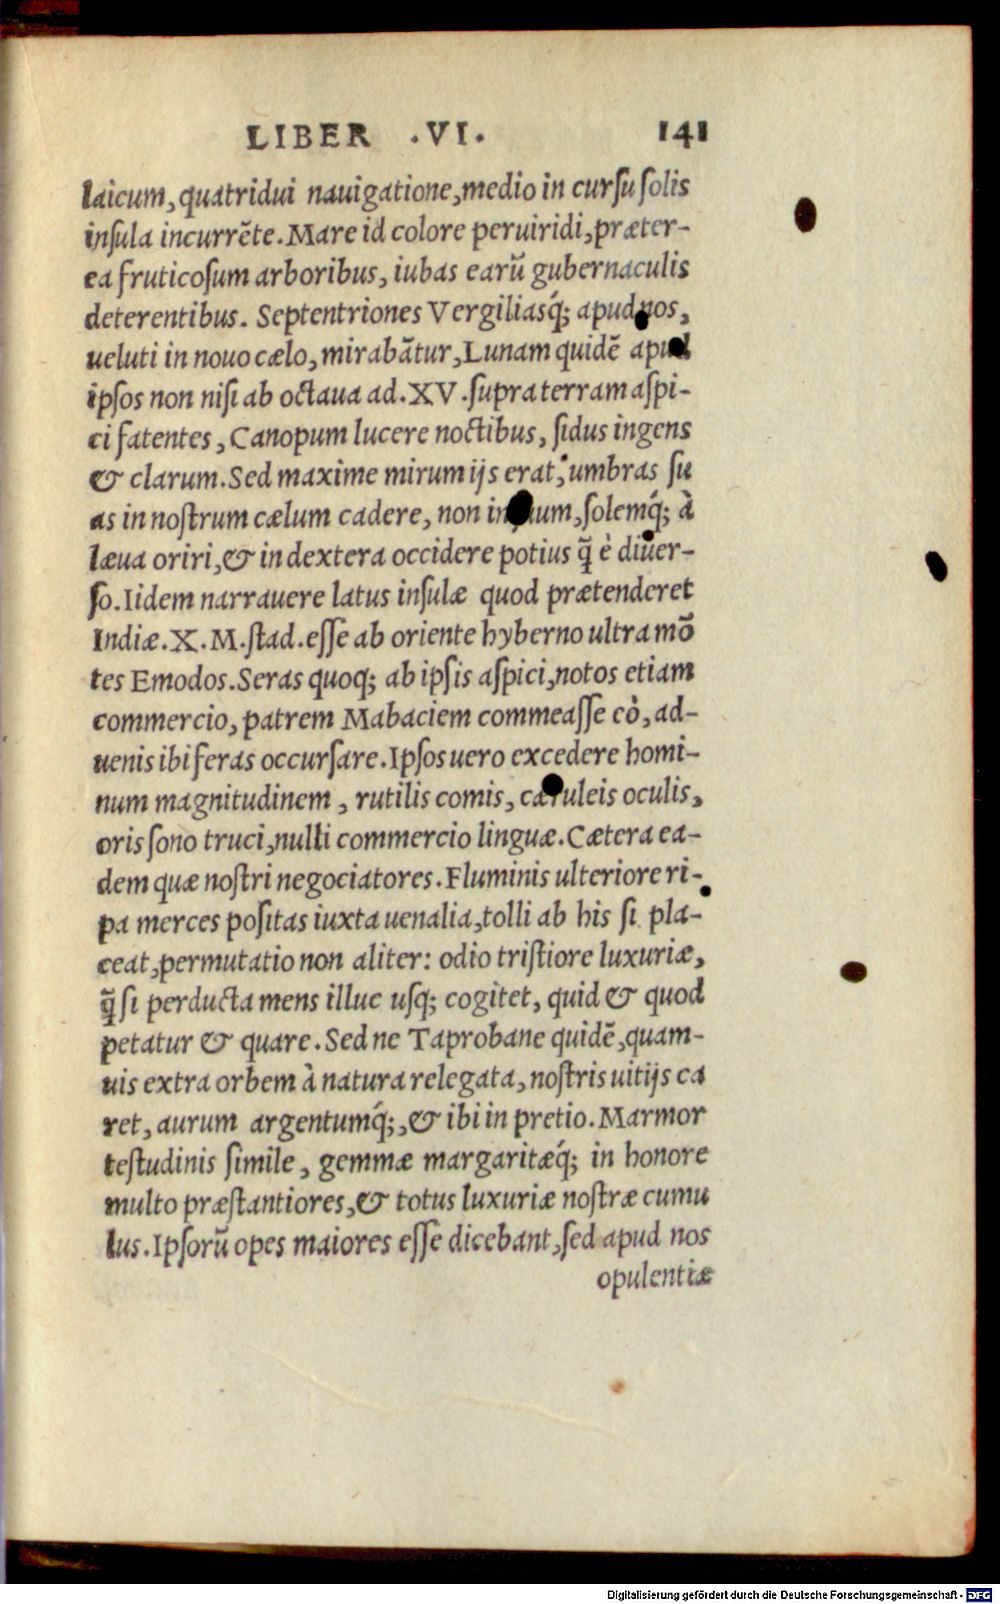 LIBER .VI. 141
laicum, quatridui nauigatione, medio in cursu solis
insula incurrẽte. Mare id colore peruiridi, præter-
ea fruticosum arboribus, iubas earũ gubernaculis
deterentibus. Septentriones Vergiliasq́; apud nos,
ueluti in nouo cælo, mirabãtur, Lunam quidẽ apud
ipsos non nisi ab octaua ad .XV. supra terram aspi-
ci fatentes, Canopum lucere noctibus, sidus ingens
& clarum. Sed maxime mirum ijs erat, umbras su
as in nostrum cælum cadere, non in solemq́; à
læua oriri, & in dextera occidere potius q̃ è diuer-
so. Iidem narrauere latus insulæ quod prætenderet
Indiæ .X. M. stad. esse ab oriente hyberno ultra mõ
tes Emodos. Seras quoq; ab ipsis aspici, notos etiam
commercio, patrem Mabaciem commeasse eò, ad-
uenis ibi feras occursare. Ipsos uero excedere homi-
num magnitudinem, rutilis comis, cæruleis oculis,
oris sono truci, nulli commercio linguæ. Cætera ea-
dem quæ nostri negociatores. Fluminis ulteriore ri-
pa merces positas iuxta uenalia, tolli ab his si pla-
ceat, permutatio non aliter: odio tristiore luxuriæ,
q̃ si perducta mens illuc usq; cogitet, quid & quod
petatur & quare. Sed ne Taprobane quidẽ, quam-
uis extra orbem à natura relegata, nostris uitijs ca
ret, aurum argentumq́;, & ibi in pretio. Marmor
testudinis simile, gemmæ margaritæq́; in honore
multo præstantiores, & totus luxuriæ nostræ cumu
lus. Ipsorũ opes maiores esse dicebant, sed apud nos
opulentiæ
Digitalisierung gefördert durch die Deutsche Forschungsgemeinschaft - DFG